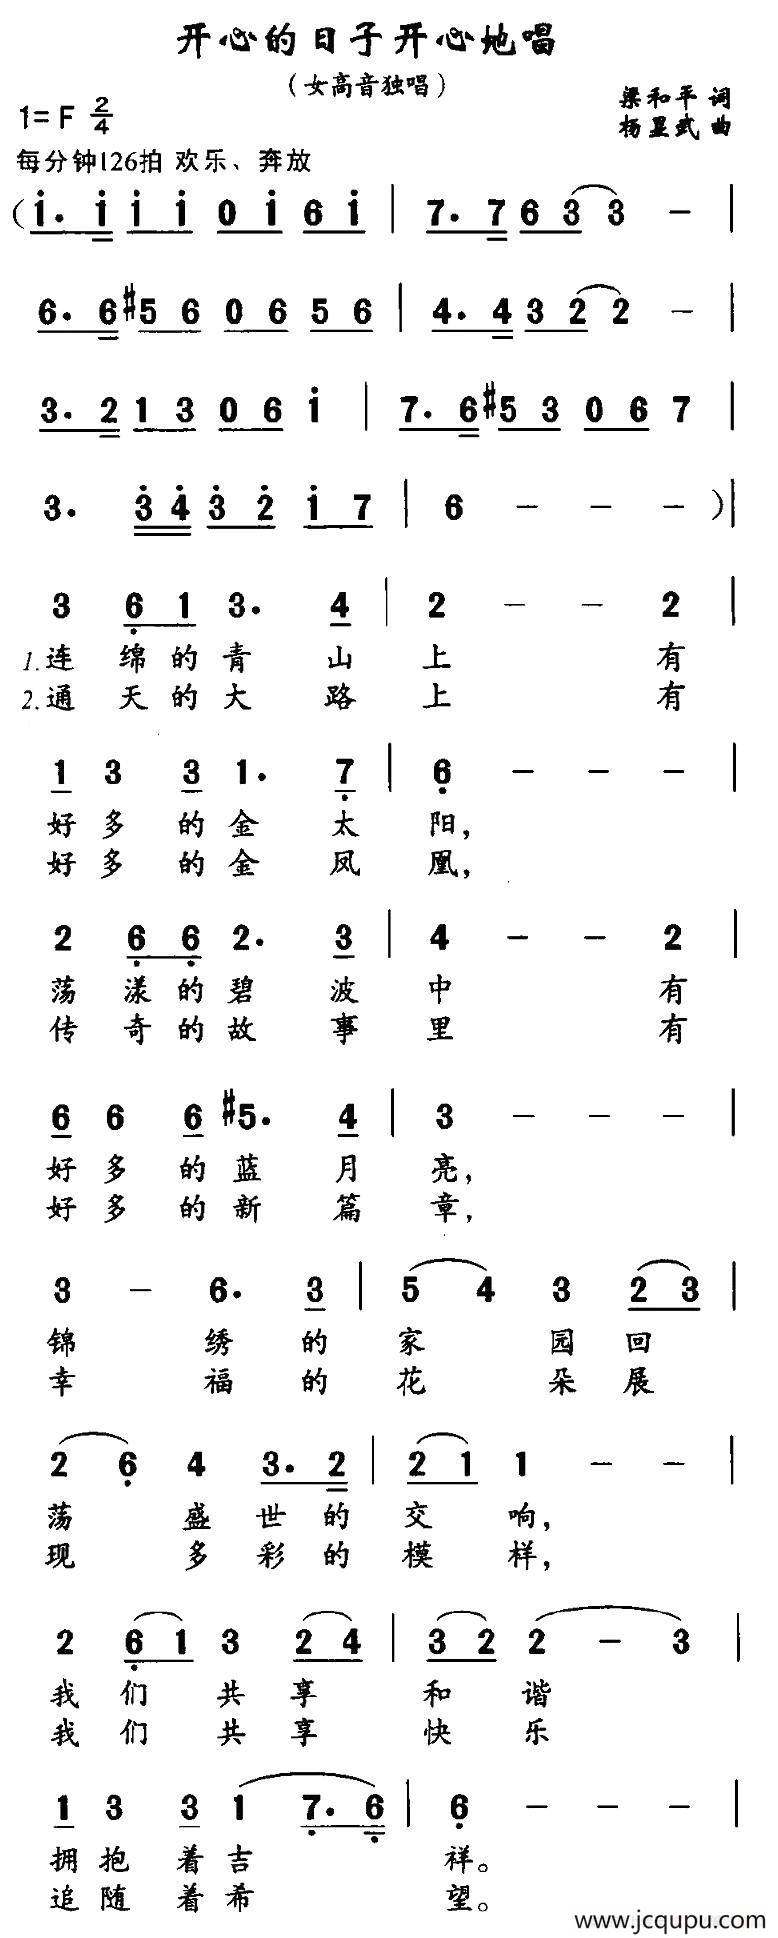 开心的日子开心地唱
（女高音独唱）
梁和平 词
1= F 2/4
杨星武 曲
每分钟126拍 欢乐、奔放
(i. i i i 0 i 6 i | 7. 7 6 3 3 - |
6. 6 #5 6 0 6 5 6 | 4. 4 3 2 2 - |
3. 2 1 3 0 6 i | 7. 6 #5 3 0 6 7 |
3. 3 4 3 2 i 7 | 6 - - - )|
3 6 1 3. 4 | 2 - - 2 |
1.连 绵 的 青 山 上 有
2.通 天 的 大 路 上 有
1 3 3 1. 7 | 6 - - - |
好 多 的 金 太 阳,
好 多 的 金 凤 凰,
2 6 6 2. 3 | 4 - - 2 |
荡 漾 的 碧 波 中 有
传 奇 的 故 事 里 有
6 6 6 #5. 4 | 3 - - - |
好 多 的 蓝 月 亮,
好 多 的 新 篇 章,
3 - 6. 3 | 5 4 3 2 3 |
锦 绣 的 家 园 回
幸 福 的 花 朵 展
2 6 4 3. 2 | 2 1 1 - - |
荡 盛 世 的 交 响,
现 多 彩 的 模 样,
2 6 1 3 2 4 | 3 2 2 - 3 |
我 们 共 享 和 谐
我 们 共 享 快 乐
1 3 3 1 7. 6 | 6 - - - |
拥 抱 着 吉 祥。
追 随 着 希 望。
www.jcqupu.com